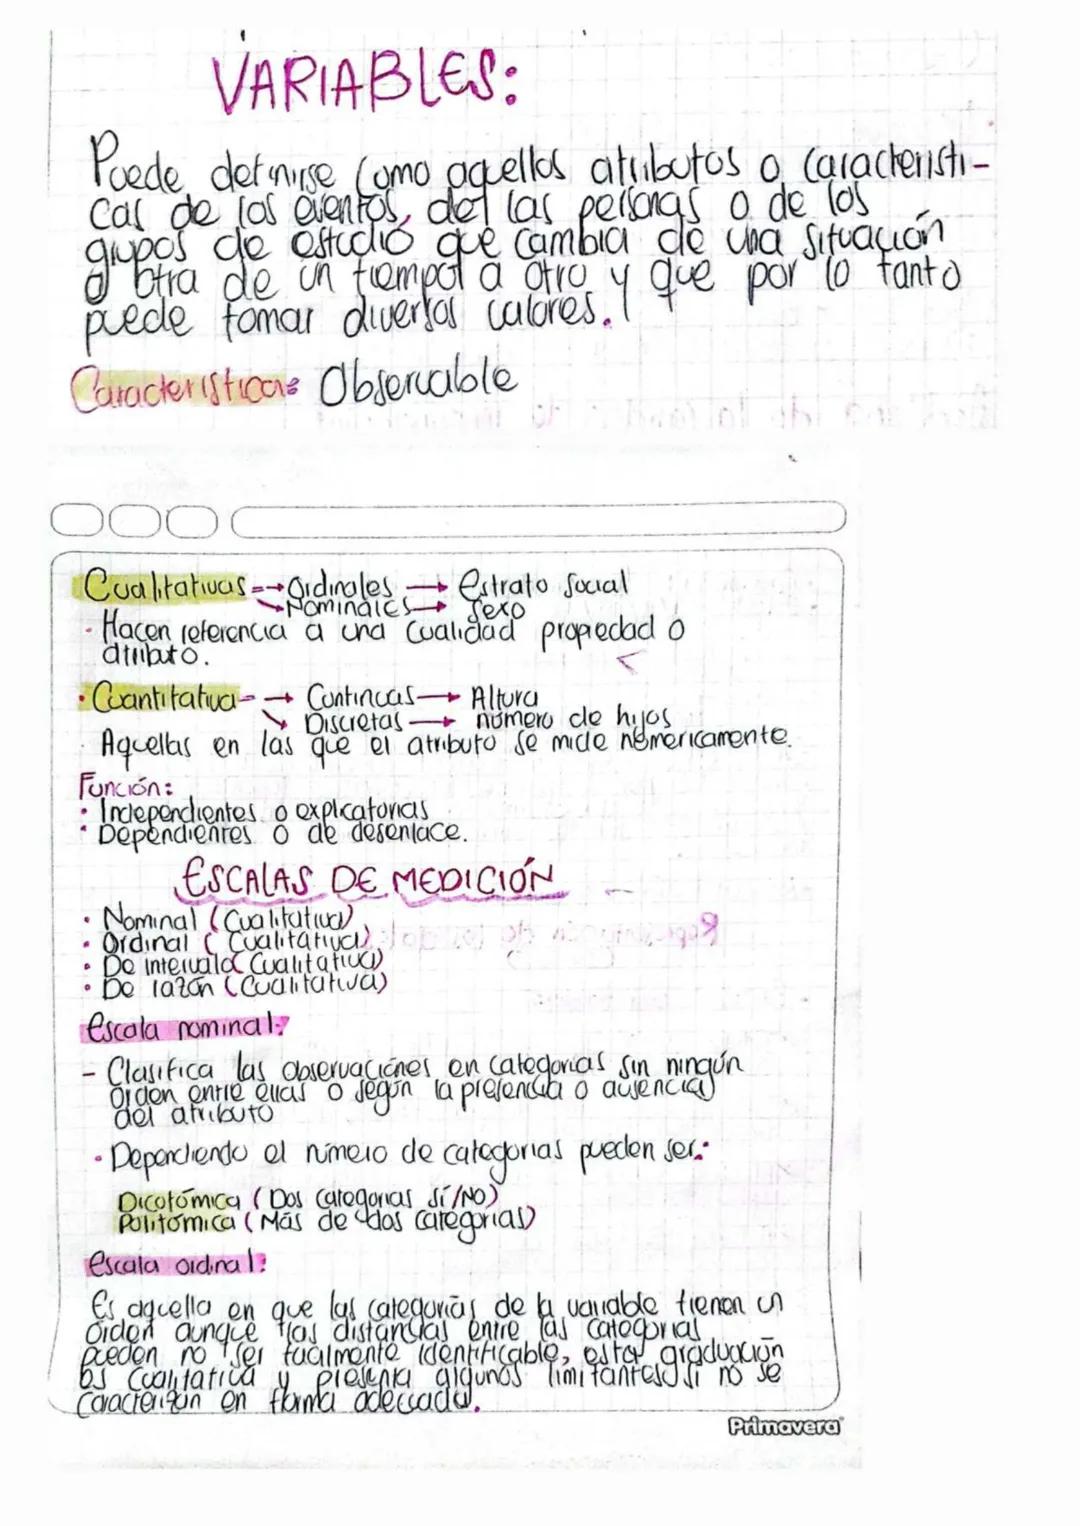 VARIABLES:
Puede definirse como aquellos atributos o característi-
cas de los eventos, de las personas o de los
grupos de estudio que cambia de una situación
a otra de un tiempo a otro y que por lo tanto
puede tomar diversas valores.
Características Observable
Cualitativas → Ordinales → Estrato Social
→ Nominales → Sexo
· Hacen referencia a una cualidad propiedad o
atributo.
· Cuantitativa → Continuas → Altura
→ Discretas → número de hijos
Aquellas en las que el atributo se mide númericamente.
Función:
· Independientes o explicatorias
· Dependientes o de desenlace.
ESCALAS DE MEDICIÓN
· Nominal (Cualitativa)
· Ordinal (Cualitativa)
· De intervalo (Cualitativa)
· De razón (Cualitativa)
Escala nominal:
- Clasifica las observaciónes en categorías sin ningún
orden entre ellas o según la presencia o ausencia
del atributo
· Dependiendo el número de categorias pueden ser:
Dicotómica (Dos categorias Sí/No)
Politómica (Más de dos categorías)
Escala ordinal:
Es aquella en que las categorías de la variable tienen un
orden aunque las distancias entre las categorías
pueden no ser facilmente identificable, estar graduación
es cualitativa y presenta algunos limitantes si no se
caracterizan en forma adecuada.
Primavera